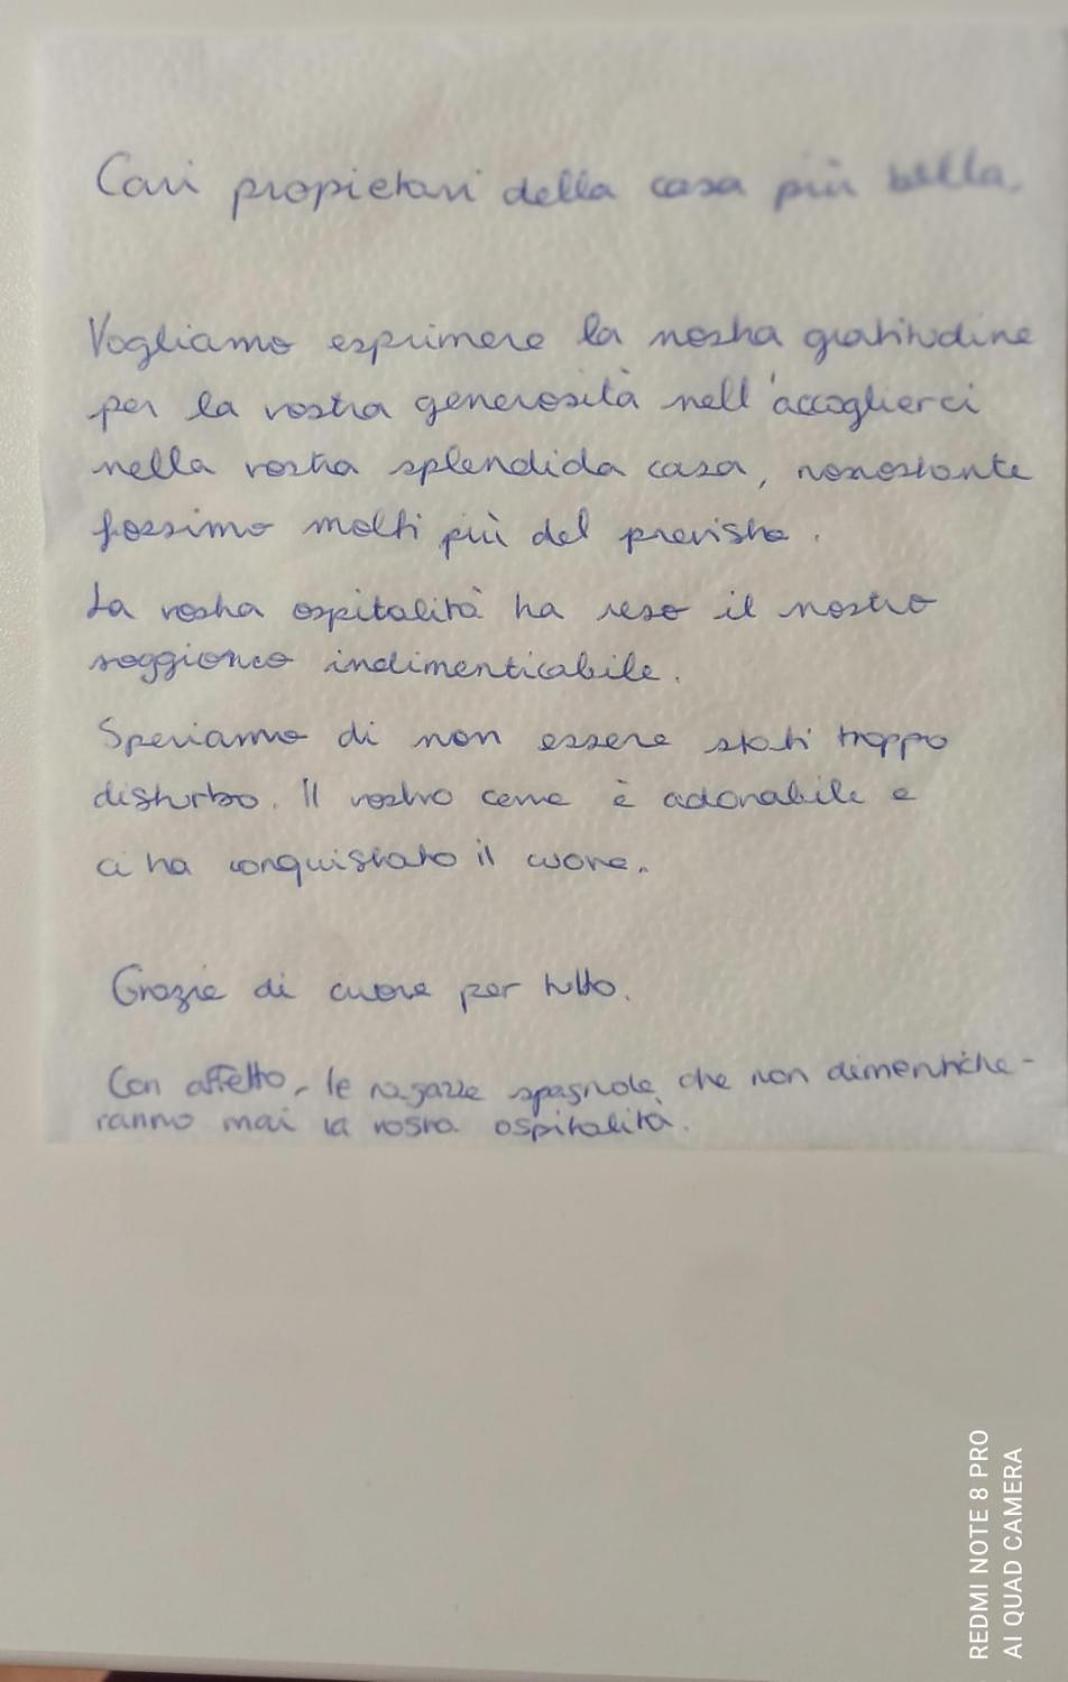 Cari propietari della casa più bella.
Vogliamo esprimere la nostra gratitudine
per la vostra generosità nell'accoglierci
nella vostra splendida casa, nonostante
fossimo molti più del previsto.
La vostra ospitalità ha reso il nostro
soggiorno indimenticabile.
Speriamo di non essere stati troppo
disturbo. Il vostro cane è adorabile e
ci ha conquistato il cuore.
Grazie di cuore per tutto.
Con affetto, le ragazze spagnole, che non dimentiche-
ranno mai la vostra ospitalità.
REDMI NOTE 8 PRO
AI QUAD CAMERA